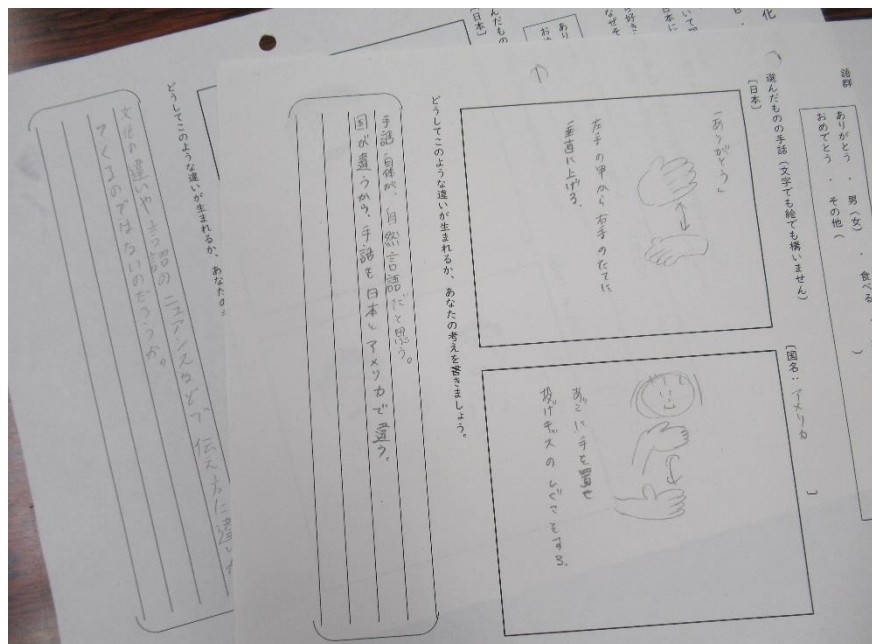 語群
ありがとう ・ 男（女） ・ 食べる
おめでとう ・ その他（ ）
選んだものの手話（文字でも絵でも構いません）
［日本］
「ありがとう」
左手の甲から右手のたてに
垂直に上げる。
［国名：アメリカ ］
あごに手を置き
投げキッスのしぐさをする。
どうしてこのような違いが生まれるか、あなたの考えを書きましょう。
手話自体が、自然言語だと思う。
国が違うから、手話も日本とアメリカで違う。
化
んだものの
［日本］
あり
おめ
どうしてこのような違いが生まれるか、あなたの
文化の違いや言語のニュアンスなどで伝え方に違いが
でてくるのではないのだろうか。